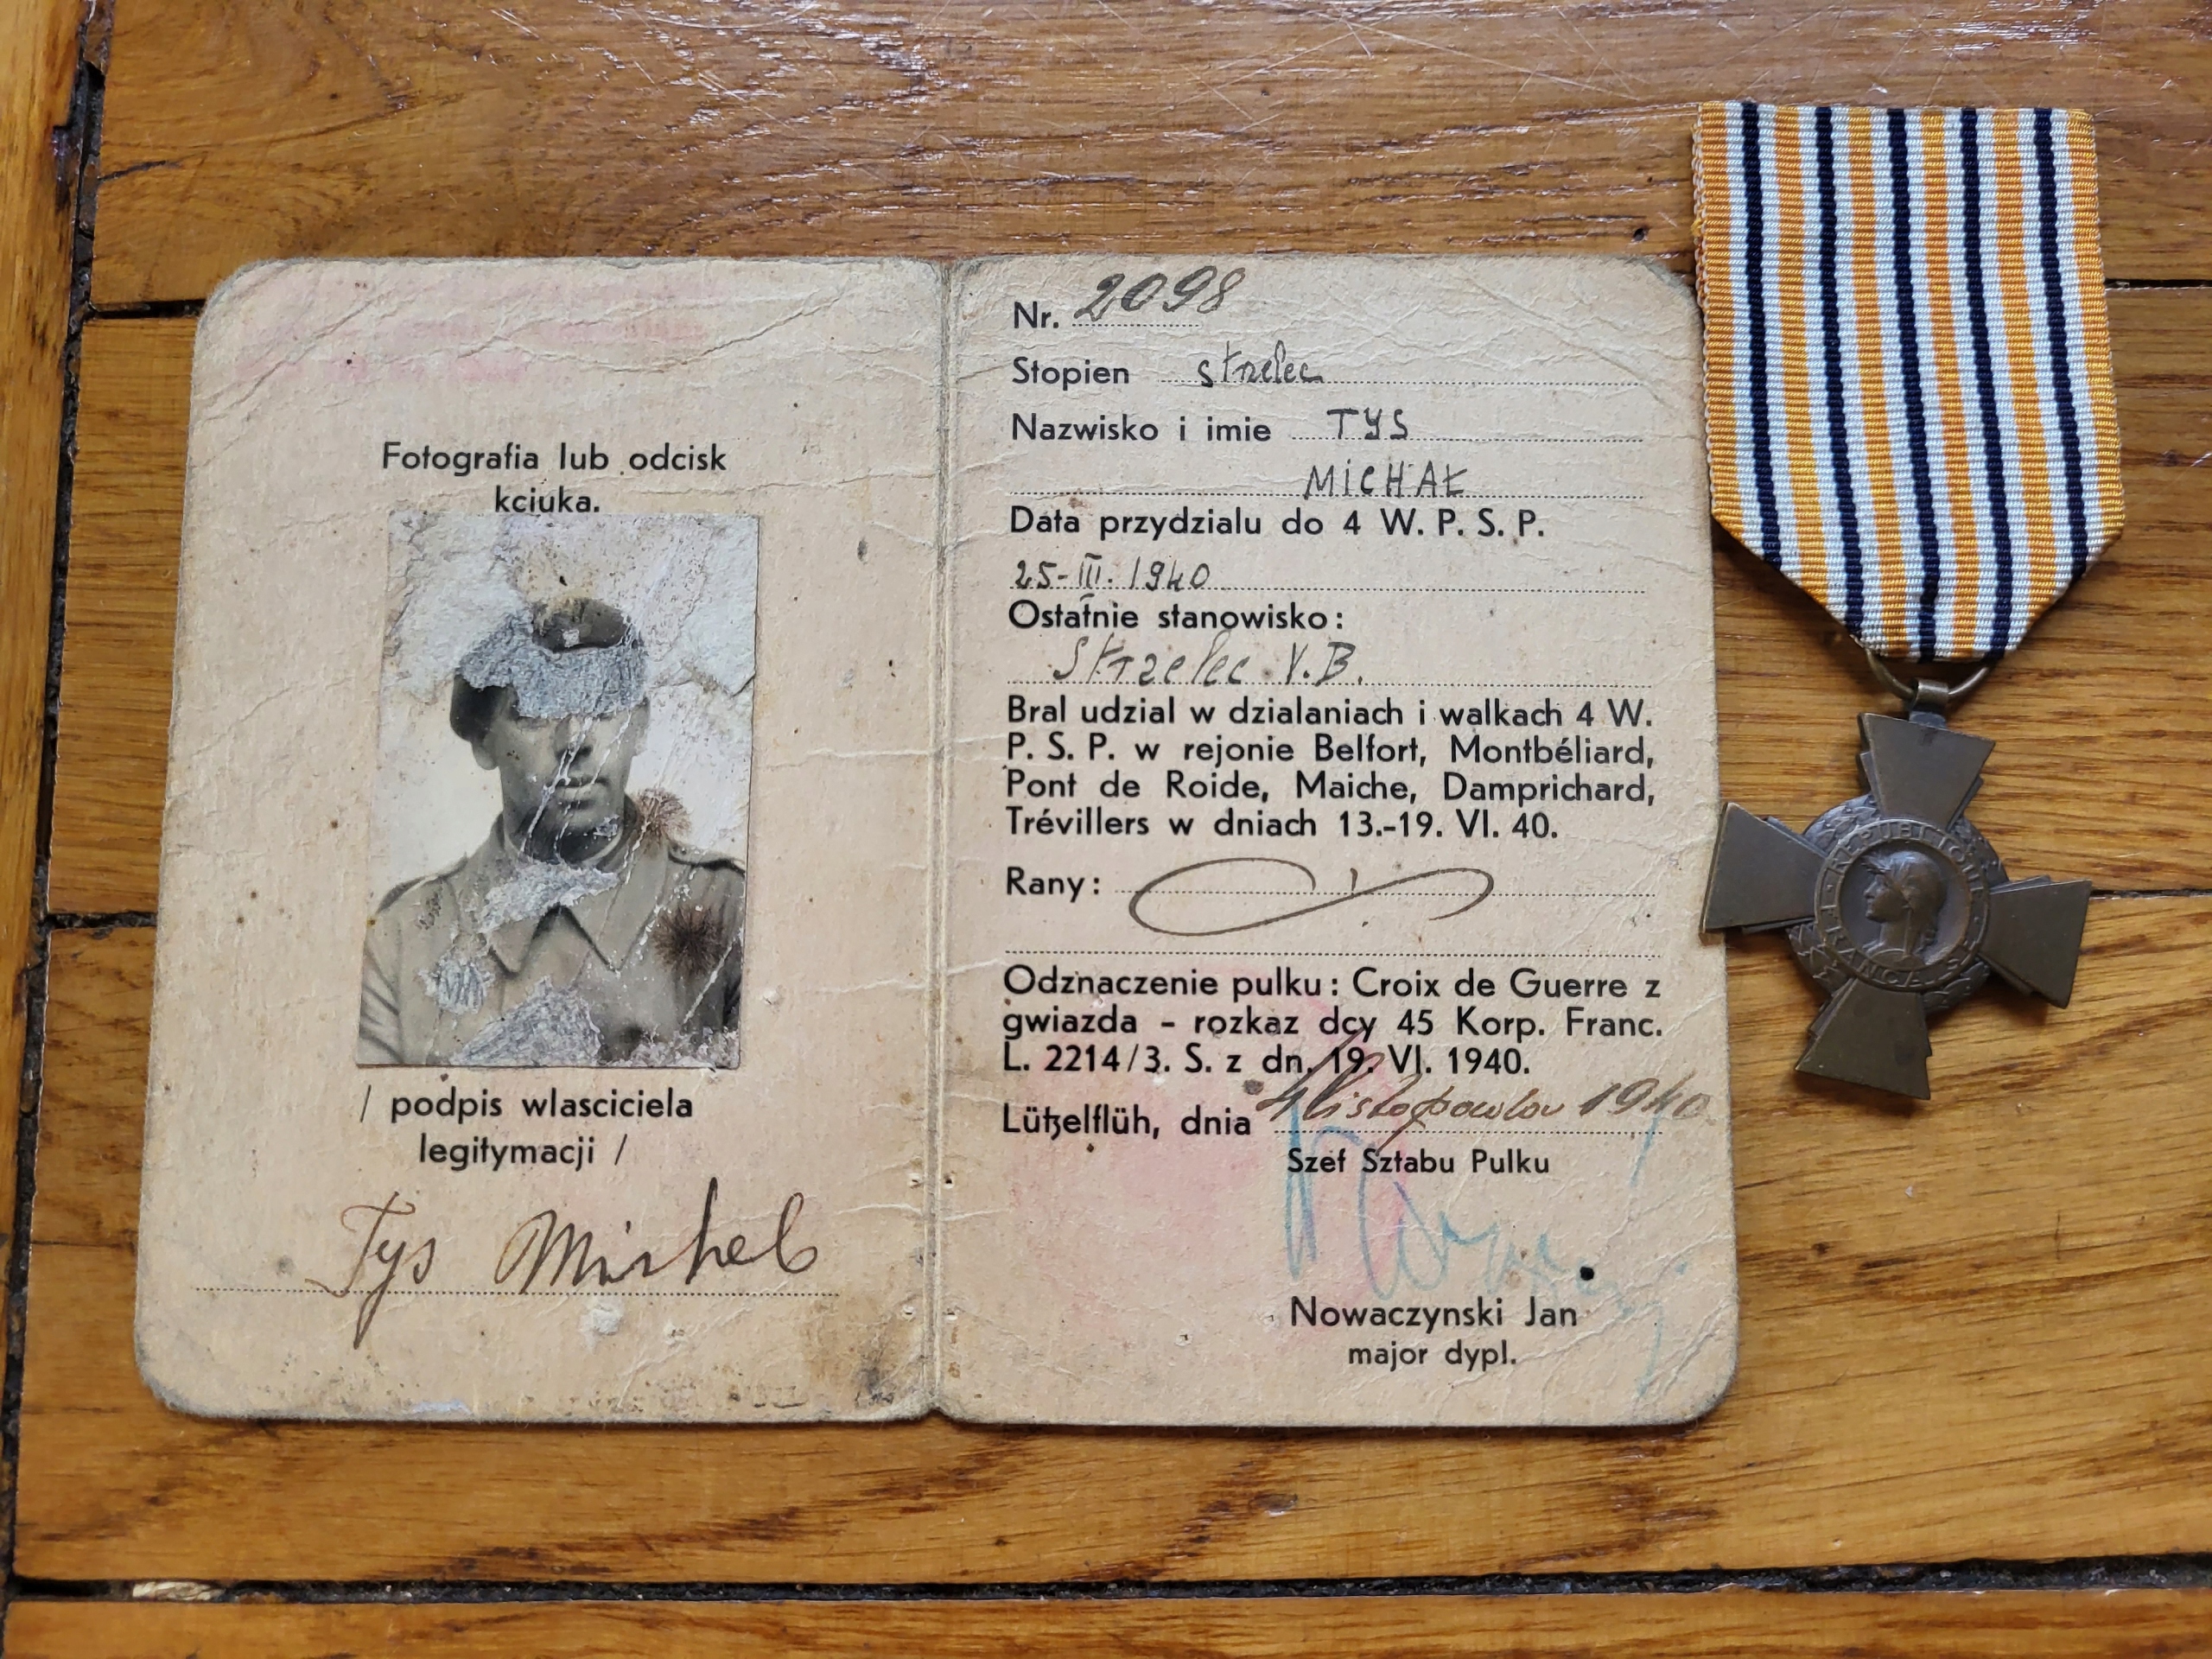 Fotografia lub odcisk
kciuka.
/ podpis wlasciciela
legitymacji /
Tys Michel
Nr. 2098
Stopien strzelec
Nazwisko i imie TYS
MiCHAŁ
Data przydzialu do 4 W. P. S. P.
25-III. 1940
Ostatnie stanowisko:
Strzelec V.B.
Bral udzial w dzialaniach i walkach 4 W.
P. S. P. w rejonie Belfort, Montbéliard,
Pont de Roide, Maiche, Damprichard,
Trévillers w dniach 13.-19. VI. 40.
Rany:
Odznaczenie pulku: Croix de Guerre z
gwiazda - rozkaz dcy 45 Korp. Franc.
L. 2214/3. S. z dn. 19. VI. 1940.
Lützelflüh, dnia 4 listopadow 1940
Szef Sztabu Pulku
Nowaczynski Jan
major dypl.
REPUBLIQUE
FRANCAISE